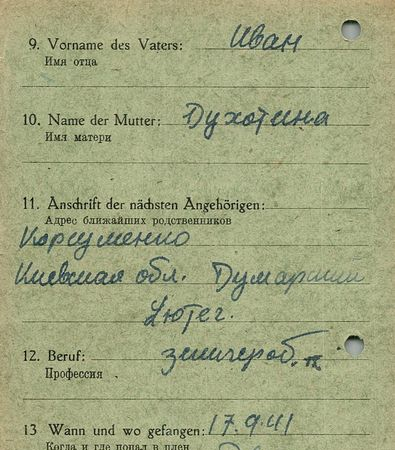 9. Vorname des Vaters: Иван
Имя отца
10. Name der Mutter: Духотина
Имя матери
11. Anschrift der nächsten Angehörigen:
Адрес ближайших родственников
Киевская обл.
12. Beruf:
Профессия
13 Wann und wo gefangen: 17.9.41
Когда и где попал в плен